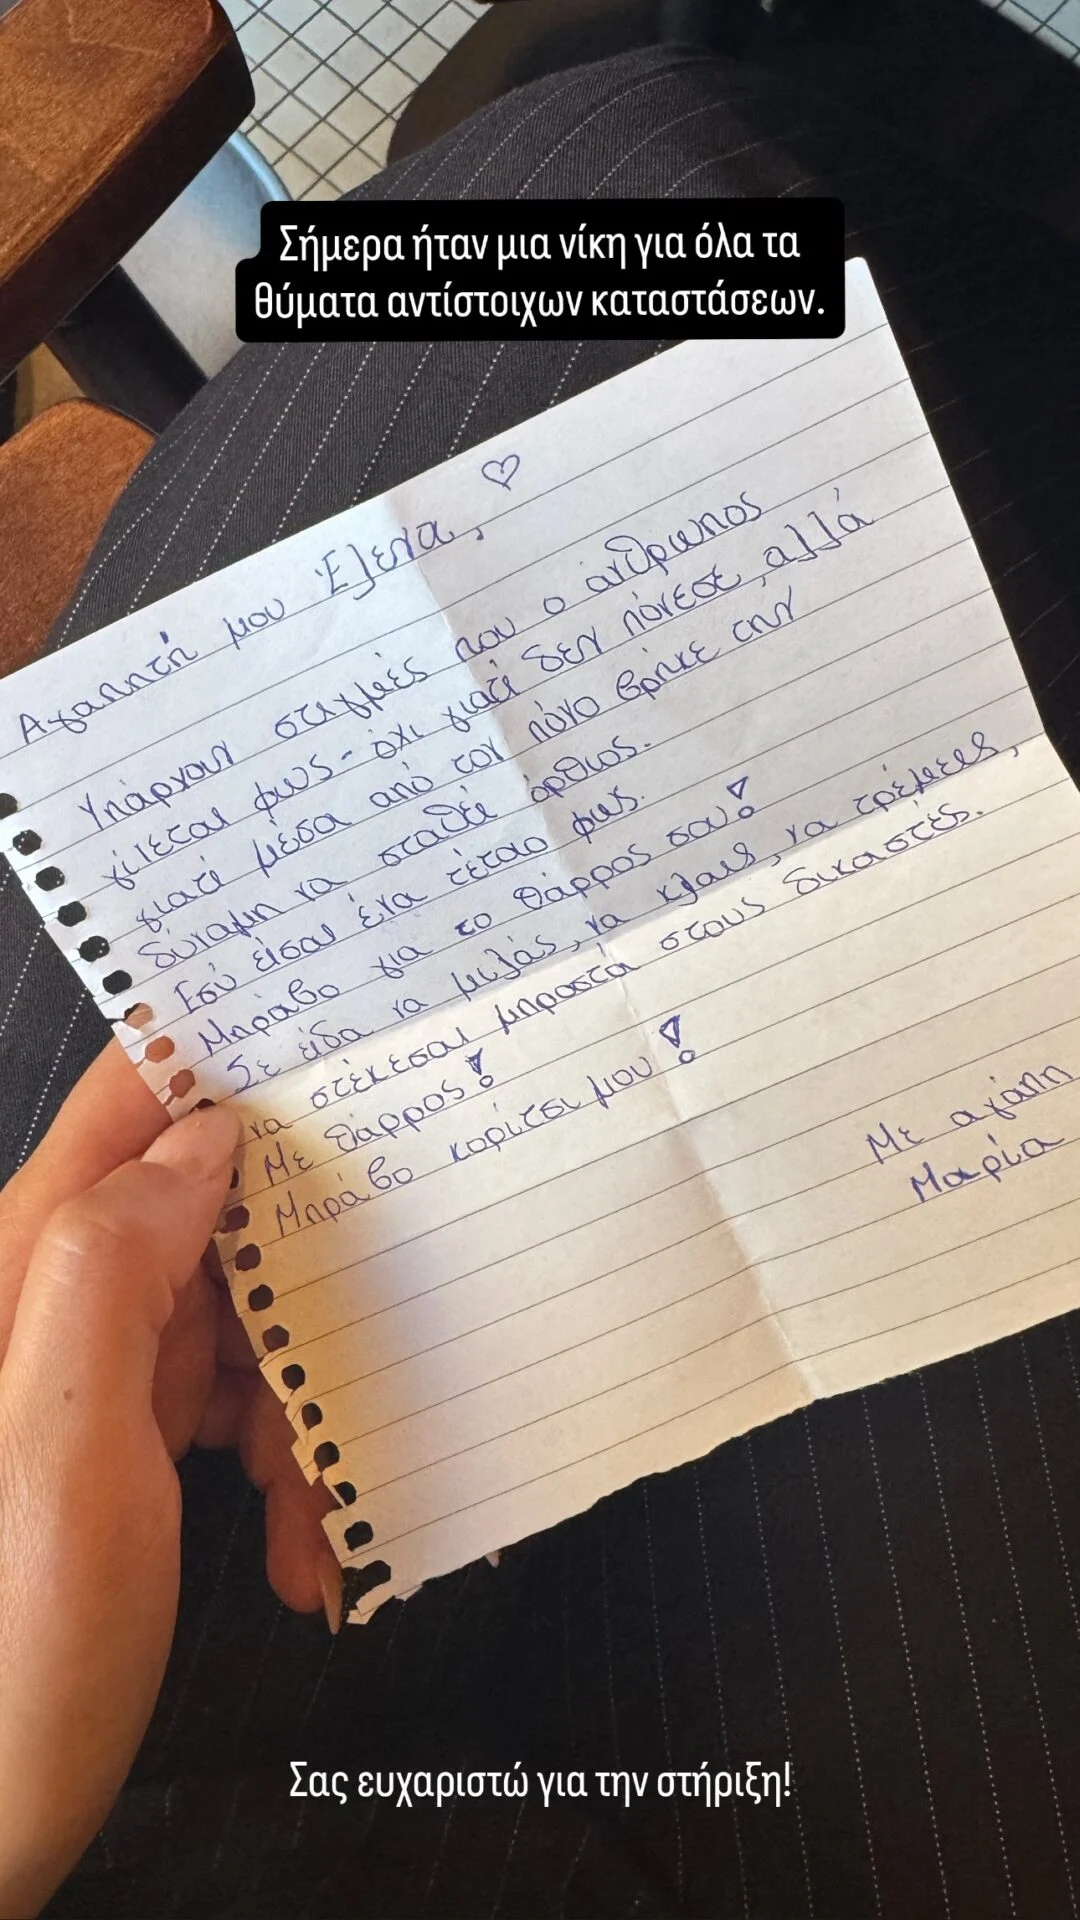 Σήμερα ήταν μια νίκη για όλα τα
θύματα αντίστοιχων καταστάσεων.
Αγαπητή μου Έλενα, ♡
Υπάρχουν στιγμές που ο άνθρωπος
γίνεται φως - όχι γιατί δεν πόνεσε, αλλά
γιατί μέσα από τον πόνο βρήκε την
δύναμη να σταθεί όρθιος.
Εσύ είσαι ένα τέτοιο φως.
Μπράβο για το θάρρος σου!
Σε είδα να μιλάς, να κλαις, να τρέμεις,
να στέκεσαι μπροστά στους δικαστές.
Με θάρρος!
Μπράβο κορίτσι μου!
Με αγάπη
Μαρία
Σας ευχαριστώ για την στήριξη!